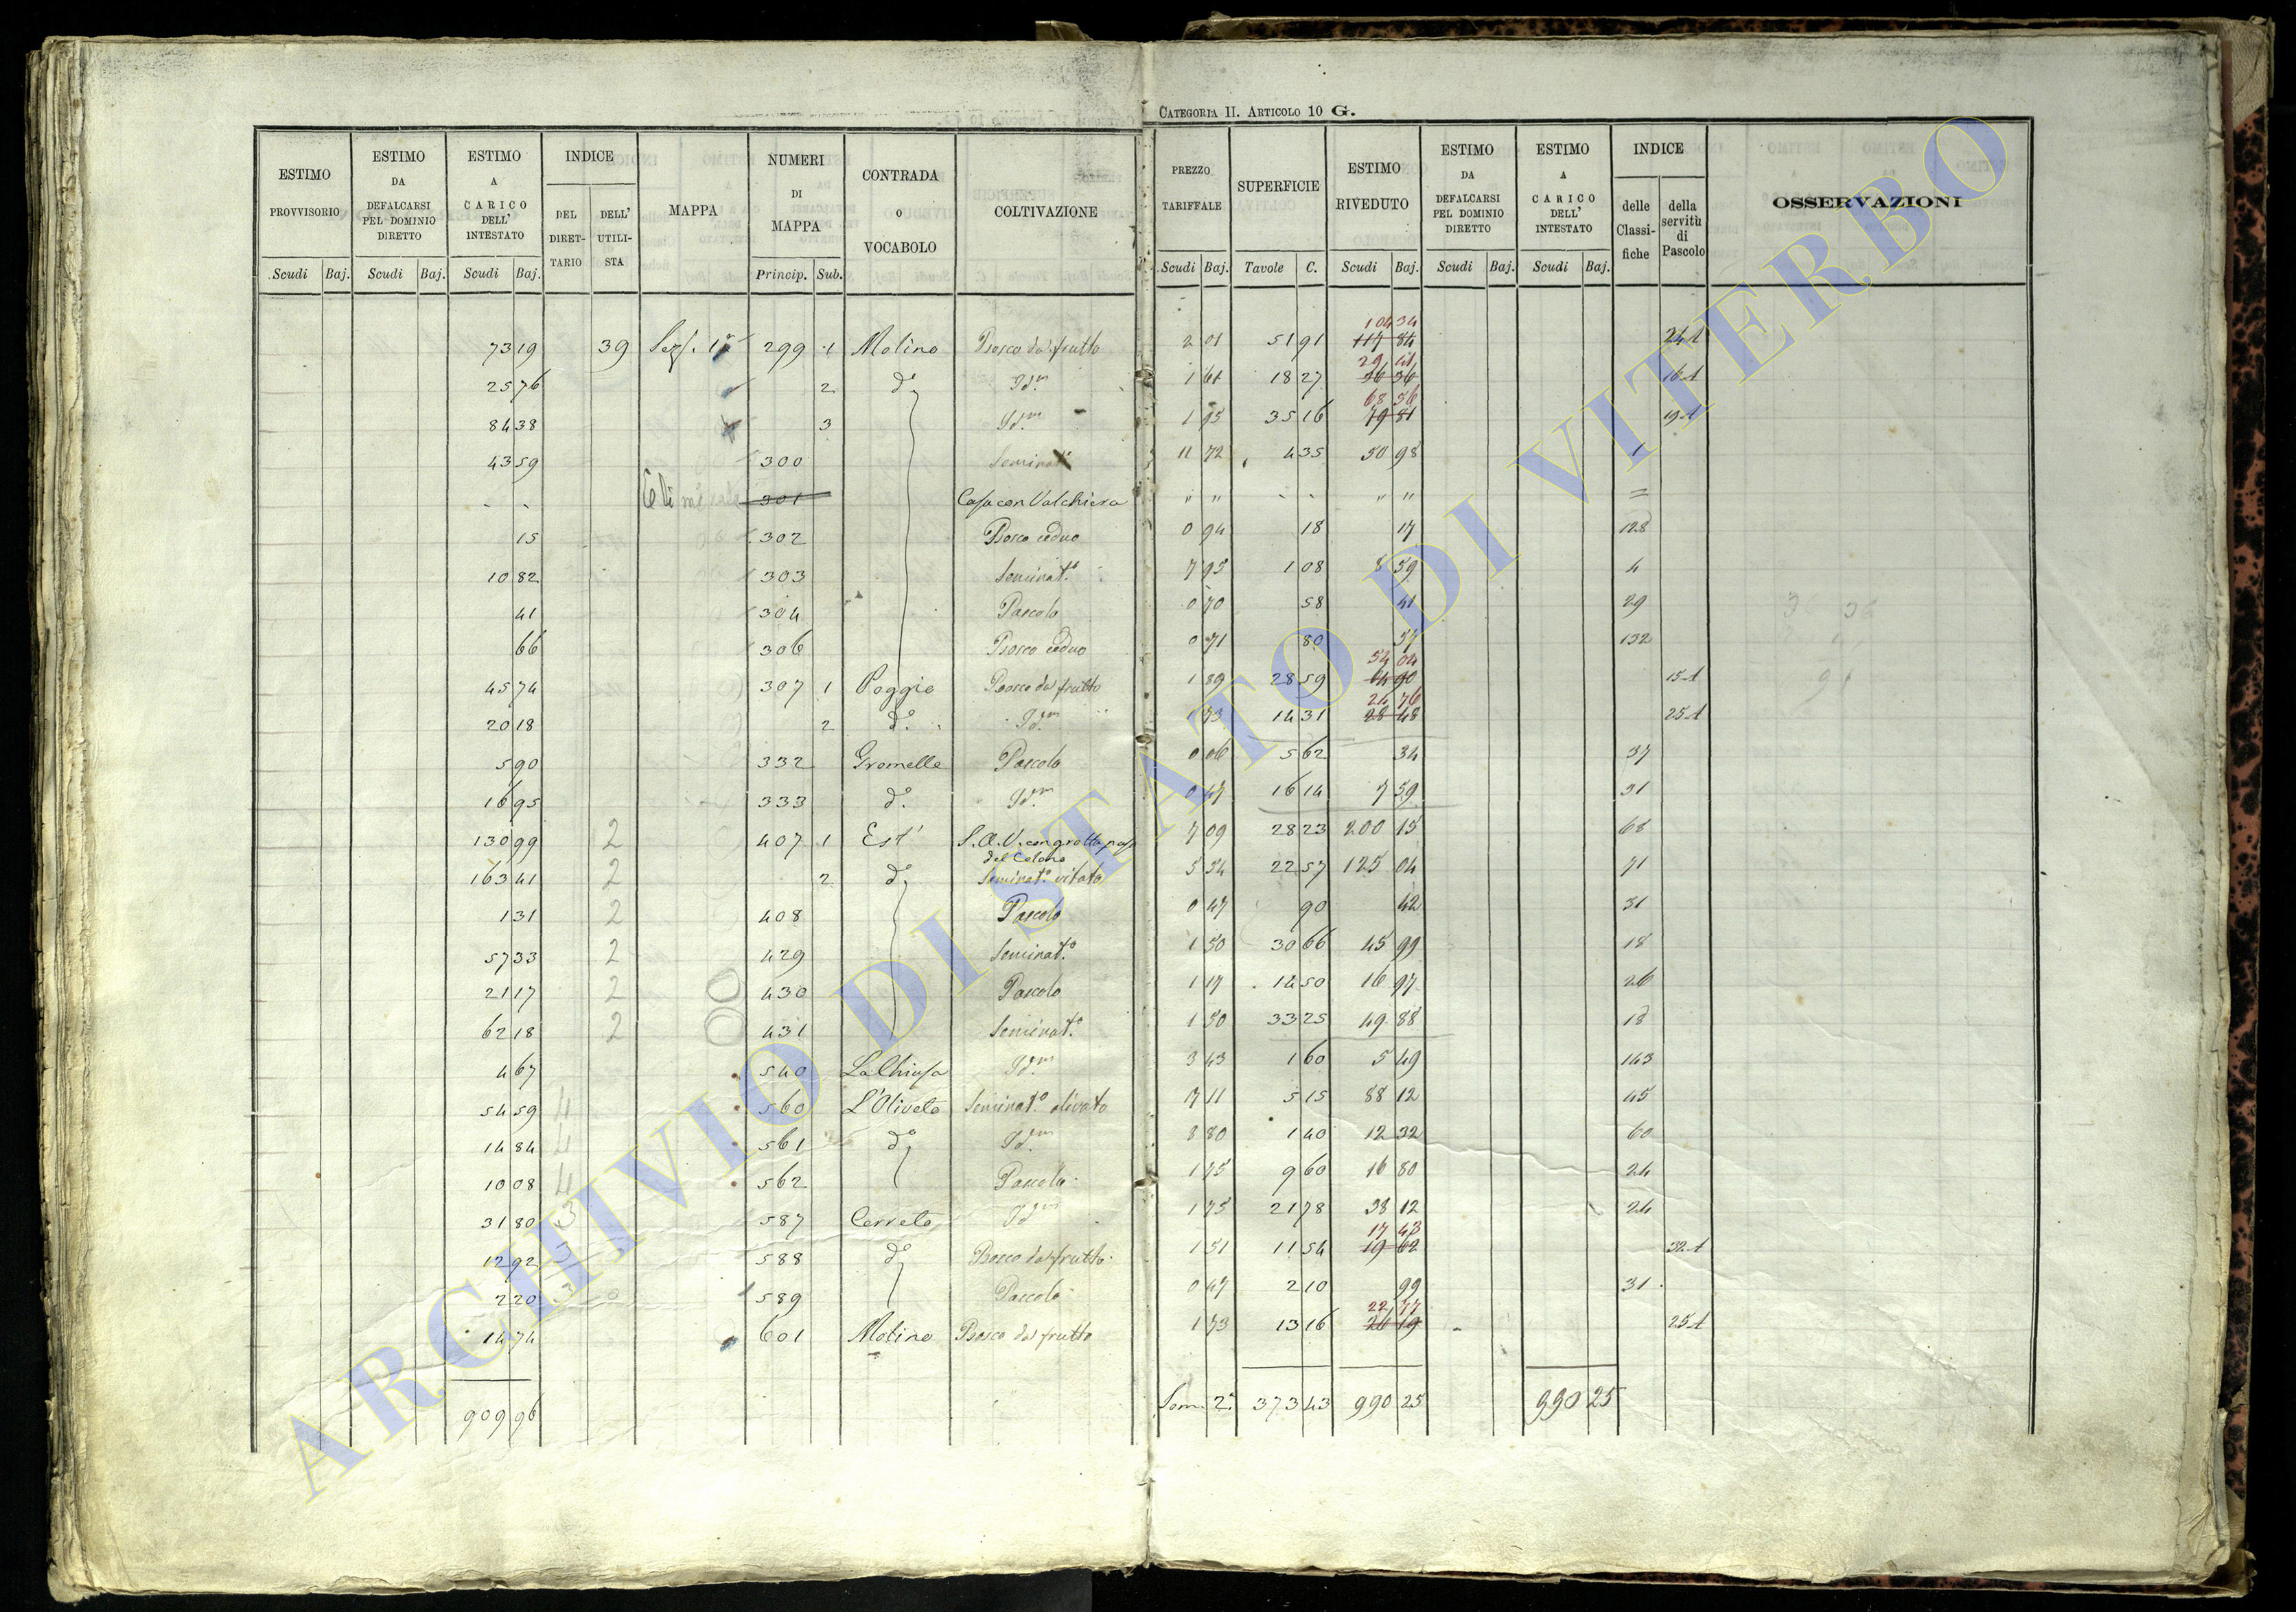 CATEGORIA II. ARTICOLO 10 G.
ESTIMO PROVVISORIO | ESTIMO DA DEFALCARSI PEL DOMINIO DIRETTO | ESTIMO A CARICO DELL' INTESTATO | INDICE | MAPPA | NUMERI DI MAPPA | CONTRADA o VOCABOLO | COLTIVAZIONE | PREZZO TARIFFALE | SUPERFICIE | ESTIMO RIVEDUTO | ESTIMO DA DEFALCARSI PEL DOMINIO DIRETTO | ESTIMO A CARICO DELL' INTESTATO | INDICE | OSSERVAZIONI
DEL DIRETTARIO | DELL' UTILISTA | delle Classifiche | della servitù di Pascolo
Scudi Baj. | Scudi Baj. | Scudi Baj. | Princip. Sub. | Scudi Baj. | Tavole C. | Scudi Baj. | Scudi Baj. | Scudi Baj.
104 34
73 19 39 Sez. 1ª 299 1 Molino Bosco da frutto 2 01 51 91 117 84 24 1
29 41
25 76 2 dº Idm 1 61 18 27 36 36 16 1
68 56
84 38 3 Idm 1 95 35 16 79 81 19 1
43 59 300 Seminatº 11 72 4 35 50 98 1
301 Casa con Valchiera " " - - " " =
15 302 Bosco ceduo 0 94 18 17 128
10 82 303 Seminatº 7 95 1 08 8 59 4
41 304 Pascolo 0 70 58 41 29
66 306 Bosco ceduo 0 71 80 57 132
54 04
45 74 307 1 Poggio Bosco da frutto 1 89 28 59 64 90 15 1
24 76
20 18 2 dº Idm 1 73 14 31 28 48 25 1
5 90 332 Gromelle Pascolo 0 06 5 62 34 37
16 95 333 dº Idm 0 47 16 14 7 59 31
130 99 2 407 1 Est' S. A. V. con grotta 7 09 28 23 200 15 68
del Colono
163 41 2 2 dº Seminatº vitato 5 54 22 57 125 04 71
1 31 2 408 Pascolo 0 47 90 42 31
57 33 2 429 Seminatº 1 50 30 66 45 99 18
21 17 2 430 Pascolo 1 17 14 50 16 97 26
62 18 2 431 Seminatº 1 50 33 25 49 88 18
4 67 540 La Chiusa Idm 3 43 1 60 5 49 143
54 59 4 560 L'Oliveto Seminatº olivato 17 11 5 15 88 12 45
14 84 4 561 dº Idm 8 80 1 40 12 32 60
10 08 4 562 Pascolo 1 75 9 60 16 80 24
31 80 3 587 Cerreto Idm 1 75 21 78 38 12 24
17 43
12 92 3 588 dº Bosco da frutto 1 51 11 54 19 62 32 1
2 20 3 589 Pascolo 0 47 2 10 99 31
22 77
14 74 601 Molino Bosco da frutto 1 73 13 16 26 19 25 1
909 96 Som. 2ª 373 43 990 25 990 25
ARCHIVIO DI STATO DI VITERBO